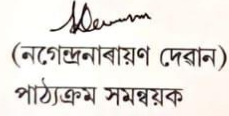 (নগেন্দ্ৰনাৰায়ণ দেৱান)
পাঠ্যক্ৰম সমন্বয়ক